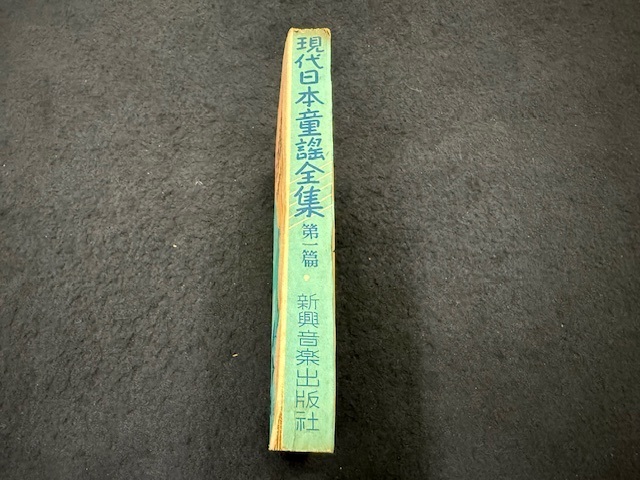 現代日本童謠全集
第一篇
新興音楽出版社